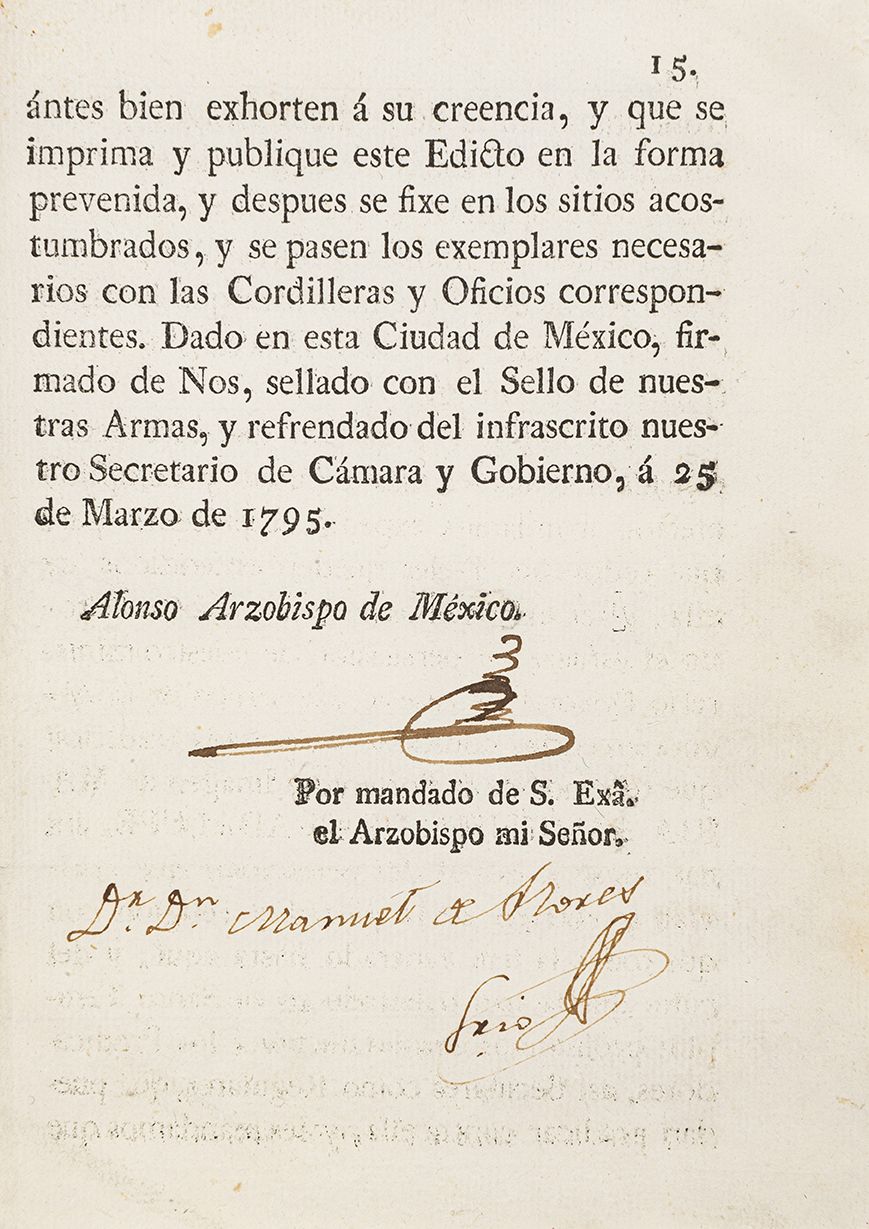 15.
ántes bien exhorten á su creencia, y que se
imprima y publique este Edicto en la forma
prevenida, y despues se fixe en los sitios acos-
tumbrados, y se pasen los exemplares necesa-
rios con las Cordilleras y Oficios correspon-
dientes. Dado en esta Ciudad de México, fir-
mado de Nos, sellado con el Sello de nues-
tras Armas, y refrendado del infrascrito nues-
tro Secretario de Cámara y Gobierno, á 25
de Marzo de 1795.
Alonso Arzobispo de México.
Por mandado de S. Exâ.
el Arzobispo mi Señor.
Dr. Dn. Manuel de Flores
Srio